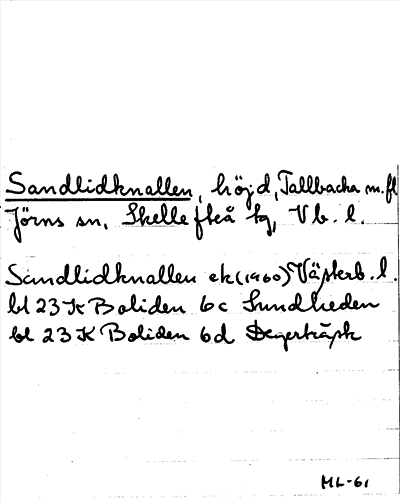 Sandlidknallen, höjd, Tallbacka m.fl
Jörns sn, Skellefteå tg, Vb. l.
Sandlidknallen ek (1960) Västerb. l.
bl 23 K Boliden 6c Sundheden
bl 23 K Boliden 6d Degerträsk
ML-61